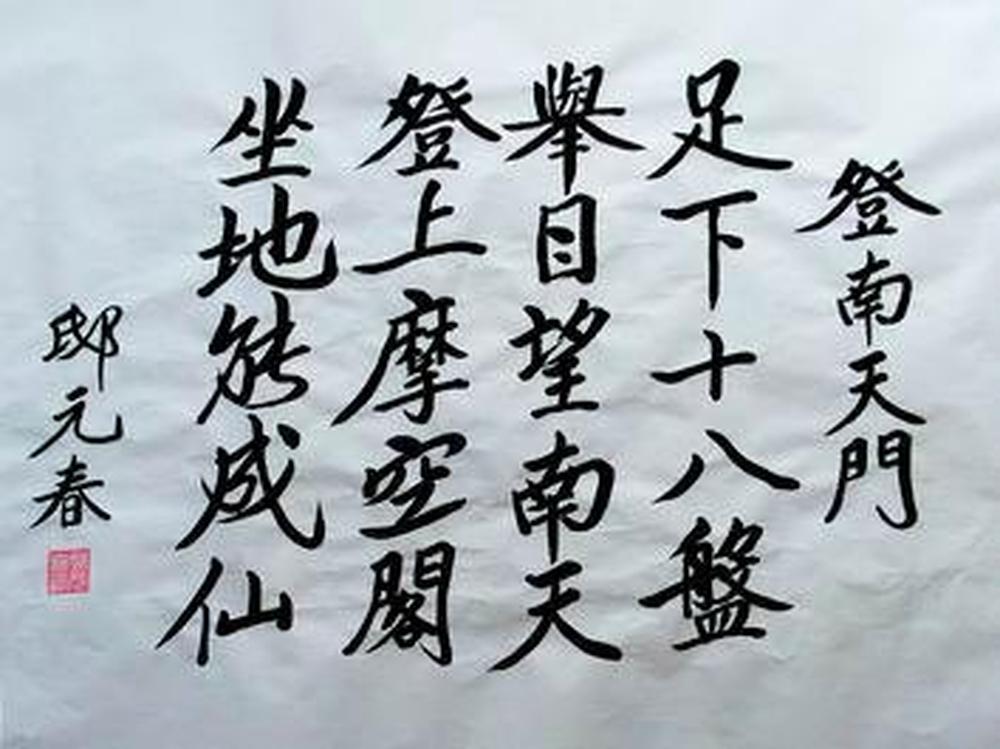 登南天門
足下十八盤
舉目望南天
登上摩空閣
坐地能成仙
邸元春